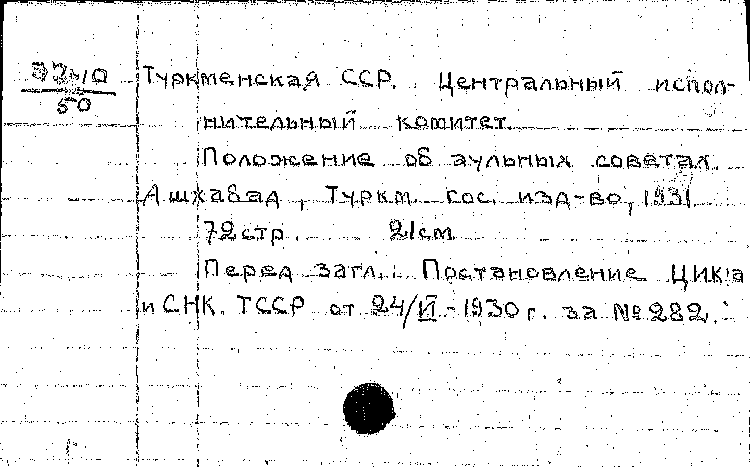 Туркменская ССР. Центральный испол-
нительный комитет.
Положение об аульных советах.
Ашхабад, Туркм. гос. изд-во, 1931
72 стр. 21 см
Перед загл.: Постановление ЦИК'а
и СНК. ТССР от 24/VI - 1930 г. за № 282.
50